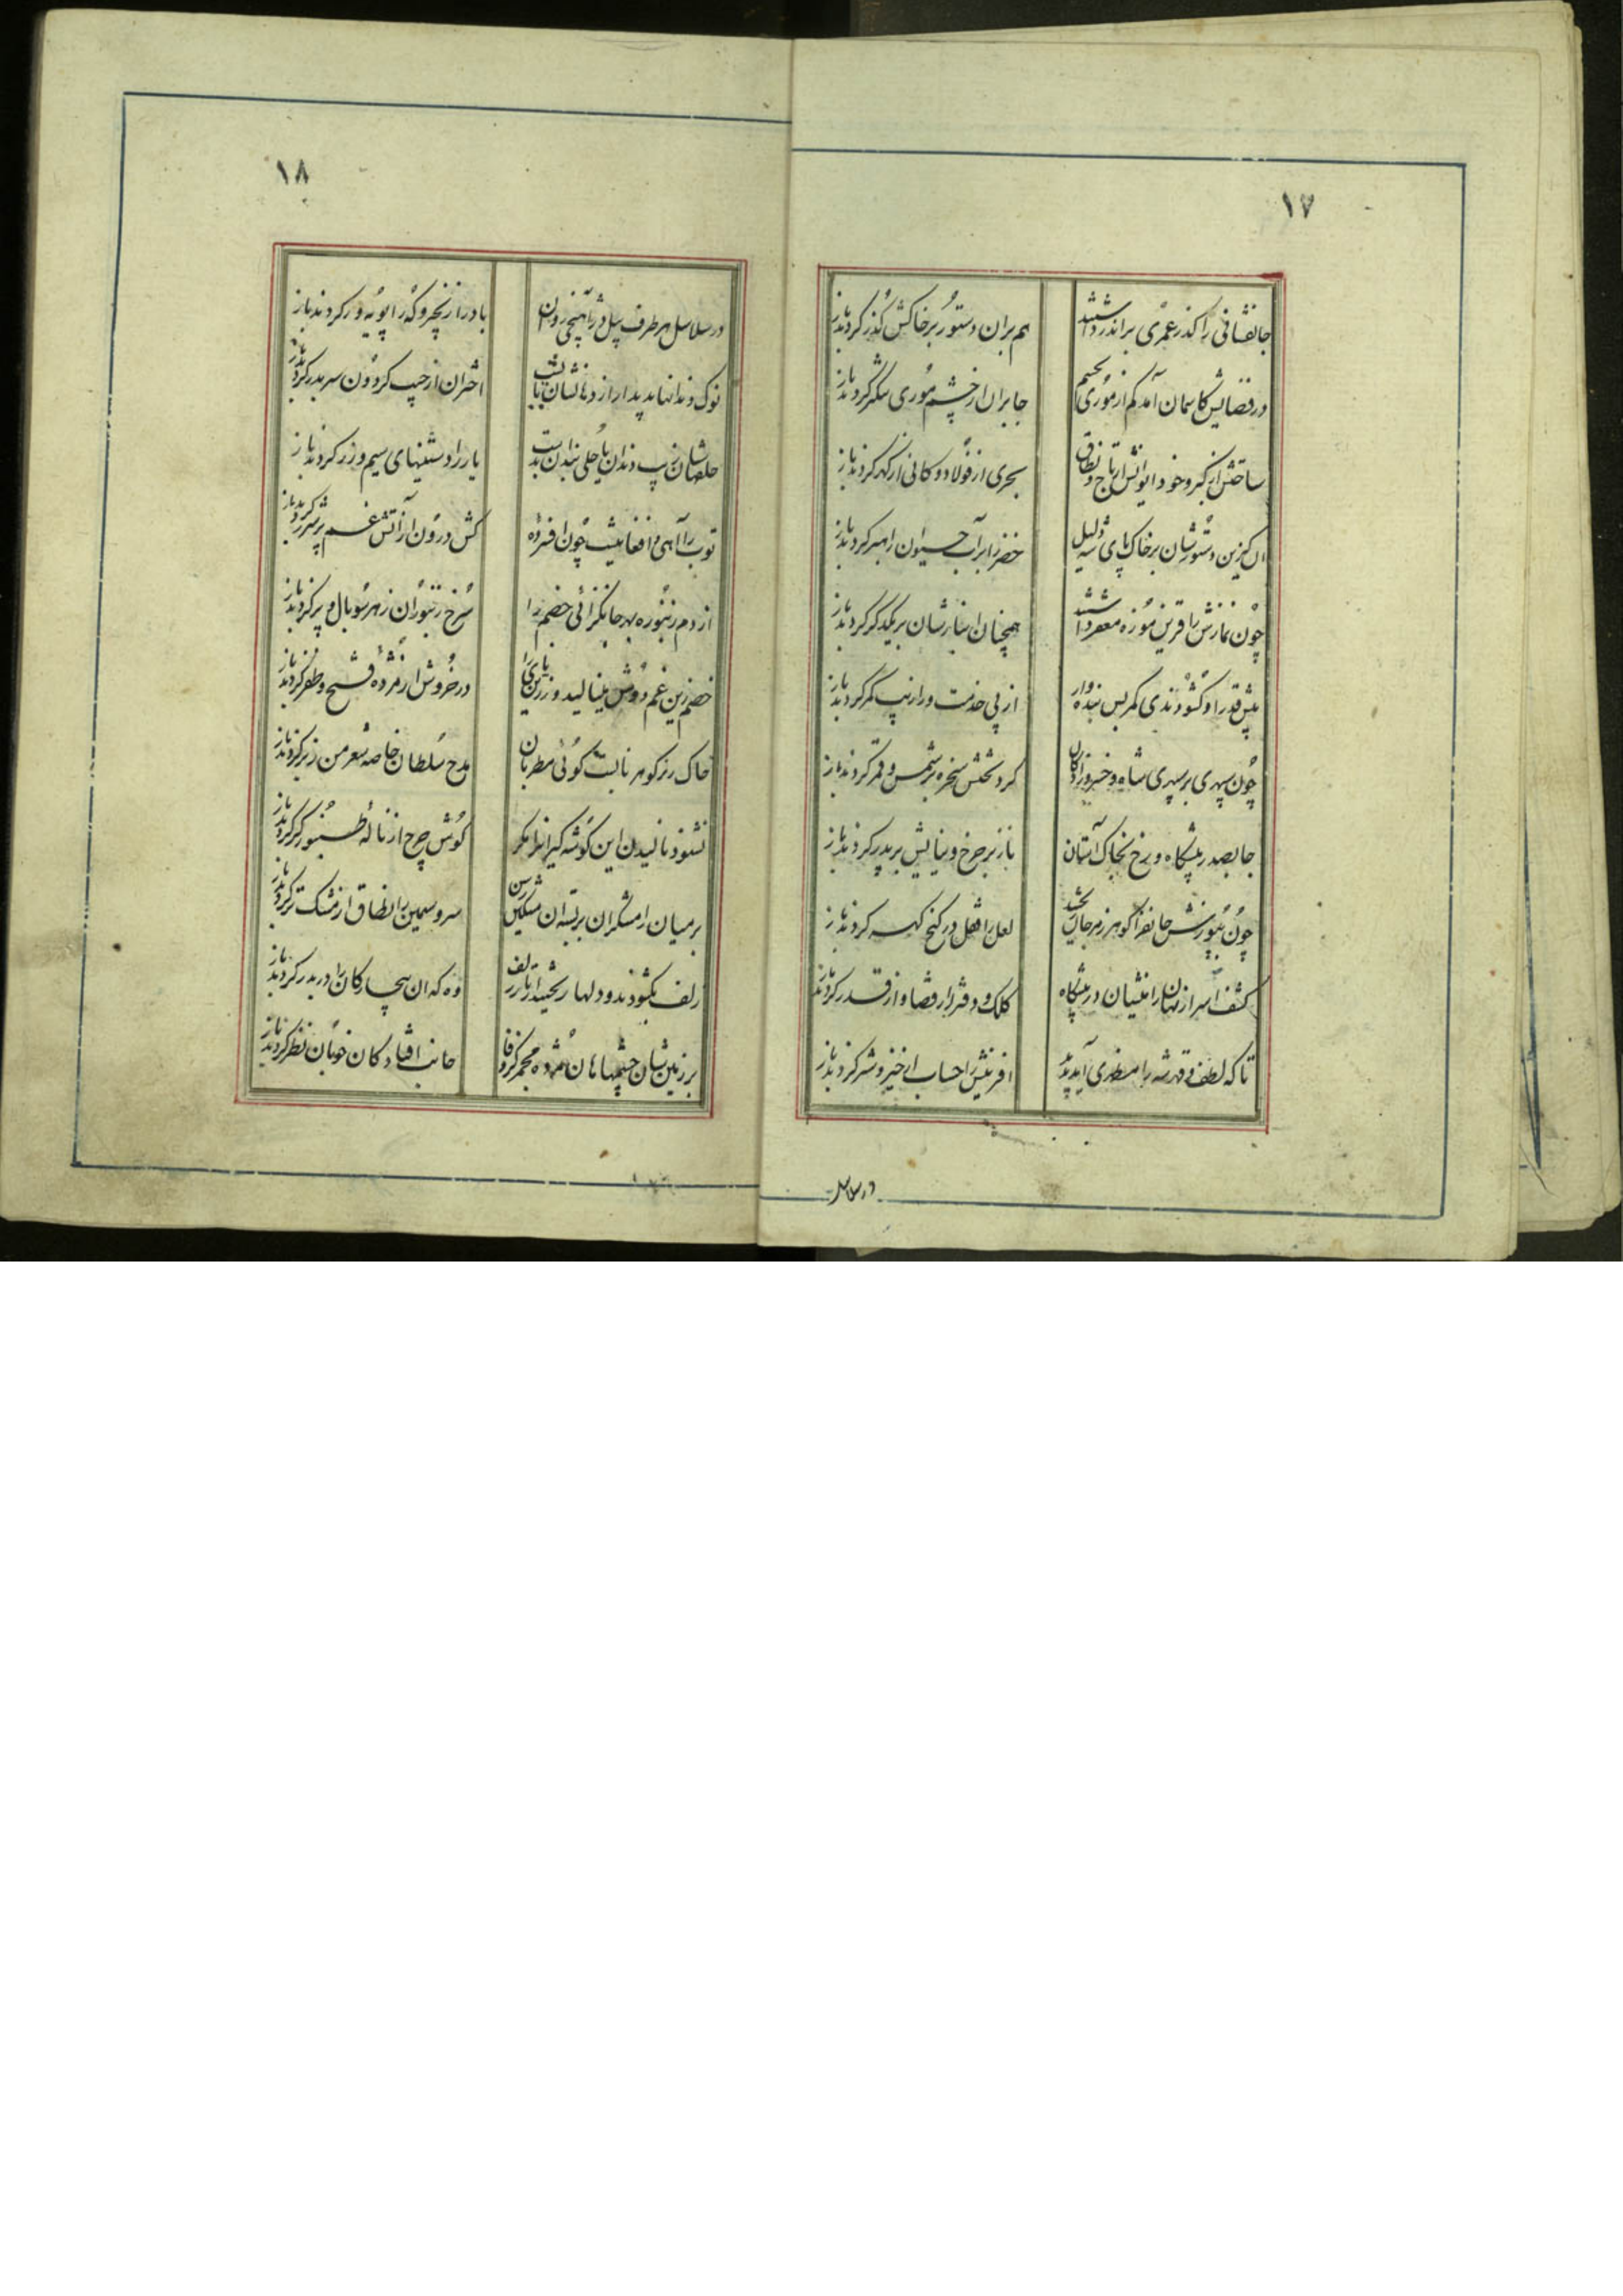 ۱۷
جانفشانی را کذر عمری براندر داشتند
هم بران دستور بر خاکش گذر کردند باز
در فضایش کاسمان آمد کم از موری بجسم
جا بران از چشم موری تنگتر کردند باز
ساختش از کبر و خود ایوانش از تاج و نطاق
بحری از فولاد و کانی از گهر کردند باز
خضر را بر آب حیوان راهبر کردند باز
چون نمازش را قرین موزه معفر داشتند
همچنان انبازشان بر یکدگر کردند باز
پیش قدر او گشودندی کمر پس بنده وار
از پی خدمت ورا زیب کمر کردند باز
چون سپهری بر سپهری شاه و خسروزادکان
کرد تختش سخره بر شمس و قمر کردند باز
جا بصدر پیشگاه و رخ بخاک آستان
ناز بر چرخ و نیایش بر پدر کردند باز
لعل را قفل در گنج گهر کردند باز
کشف اسرار نهان را منشیان در پیشگاه
کلک و دفتر از قضا و از قدر کردند باز
تا که لطف و قهر شه را مظهری آید پدید
افرینش را حساب از خیر و شر کردند باز
در سلاسل
۱۸
در سلاسل هر طرف پیل دژ آهنجی روان
باد را زنجیر و که را پویه ور کردند باز
اختران از جیب گردون سر بدر کردند باز
یار را دستینهای سیم و زر کردند باز
توپ را آهی در افغانیست چون افسرده
کش درون از آتش غم پر شرر کردند باز
از دم زنبوره بهر جانگزائی خصم را
سرخ زنبوران ز هر سو بال و پر کردند باز
خصم زین غم دوش مینالید و زرین نای را
در خروش از مژده فتح و ظفر کردند باز
خاک رز گوهر نابست گوئی مطربان
مدح سلطان خاصه شعر من ز بر کردند باز
نشنود نالیدن این گوشه گیرانرا مگر
گوش چرخ از ناله طنبور کر کردند باز
بر میان رامشگران بر بسته ان مشکین رسن
سرو سیمین را نطاق از مشک تر کردند باز
زلف بگشودند و دلها ریخت از تار زلف
وه که ان بیچارگان را دربدر کردند باز
جانب افتادگان خوبان نظر کردند باز